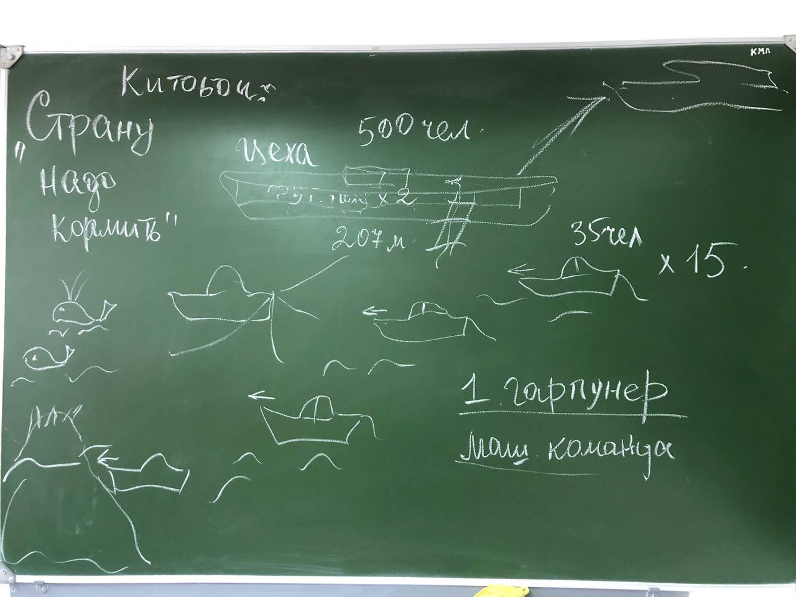 КМП
Китобои
"Страну
надо
кормить"
500 чел.
Цеха
Фут. поле x 2
207 м
35 чел
x 15.
1 гарпунер
Маш. команда